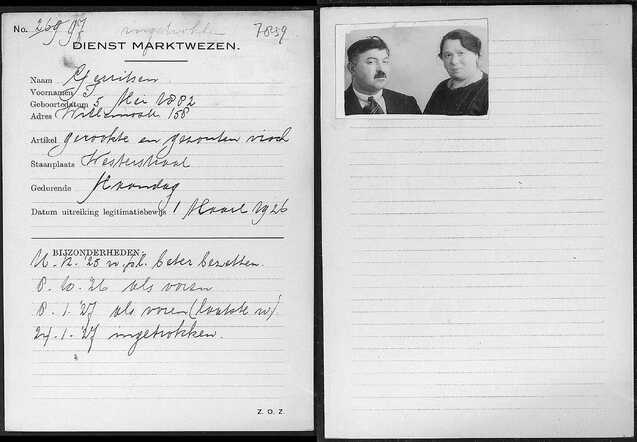 No. 269 97 ingetrokken 7839
DIENST MARKTWEZEN.
Naam Gerritsen
Voornamen J
Geboortedatum 5 Mei 1882
Adres Willemsstr 158
Artikel gerookte en gezouten visch
Staanplaats Westerstraat
Gedurende Maandag
Datum uitreiking legitimatiebewijs 1 Maart 1926
BIJZONDERHEDEN:
16.12.'25 w. pl. beter bezetten.
8.10.26 als voren
8.1.'27 als voren (laatste w)
24.1.'27 ingetrokken.
Z. O. Z.